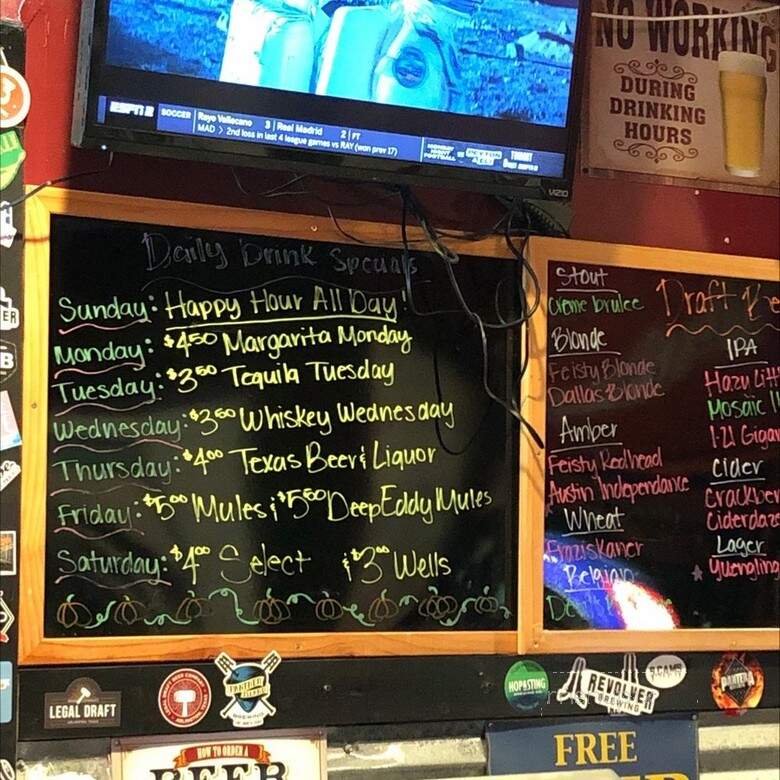 ESPN2
SOCCER
Rayo Vallecano 3 | Real Madrid 2 | FT
MAD > 2nd loss in last 4 league games vs RAY (won prev 17)
MONDAY NIGHT FOOTBALL
TONIGHT
VIZIO
NO WORKING
DURING
DRINKING
HOURS
Daily Drink Specials
Sunday: Happy Hour All Day!
Monday: $4.50 Margarita Monday
Tuesday: $3.50 Tequila Tuesday
Wednesday: $3.50 Whiskey Wednesday
Thursday: $4.00 Texas Beer & Liquor
Friday: $5.00 Mules & $5.50 Deep Eddy Mules
Saturday: $4.00 Select & $3.00 Wells
Draft
Stout
Creme brulee
Blonde
Feisty Blonde
Dallas Blonde
Amber
Feisty Redhead
Austin Independance
Wheat
Franziskaner
Belgian
IPA
Hazy Litt
Mosaic
1-21 Gigaw
Cider
Crackber
Ciderdaze
Lager
Yuengling
ER
B
LEGAL DRAFT
HOP & STING
REVOLVER
BREWING
PANTERA
HOW TO ORDER A
BEER
FREE